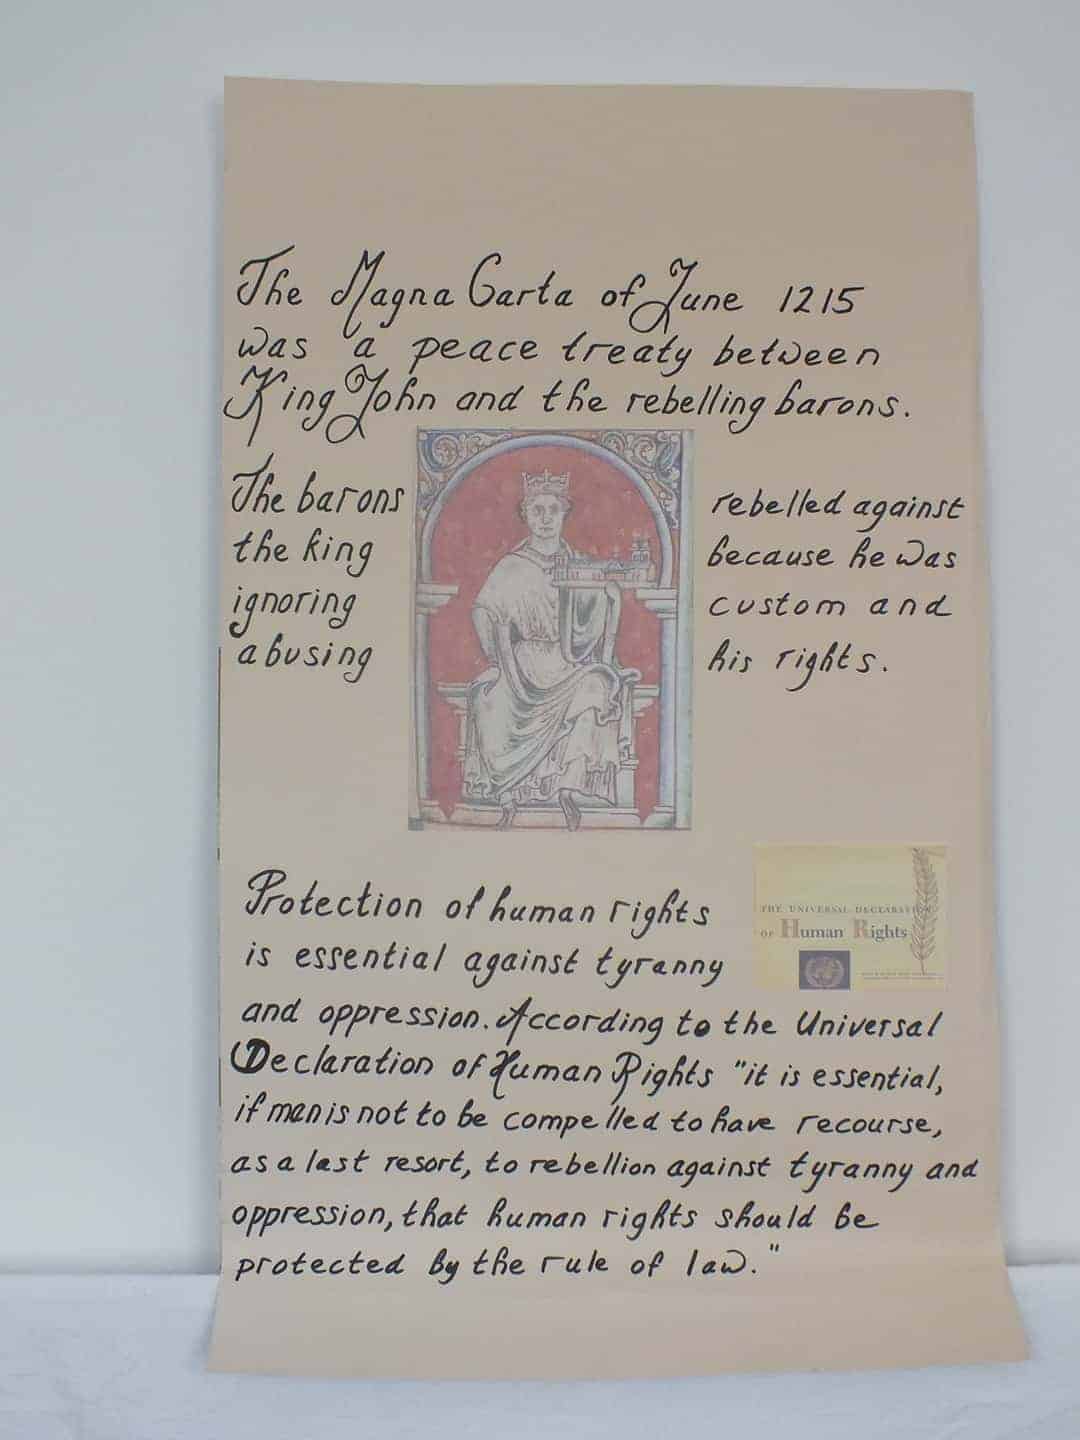 The Magna Carta of June 1215
was a peace treaty between
King John and the rebelling barons.
The barons rebelled against
the king because he was
ignoring custom and
abusing his rights.
THE UNIVERSAL DECLARATION
OF Human Rights
Protection of human rights
is essential against tyranny
and oppression. According to the Universal
Declaration of Human Rights "it is essential,
if man is not to be compelled to have recourse,
as a last resort, to rebellion against tyranny and
oppression, that human rights should be
protected by the rule of law."